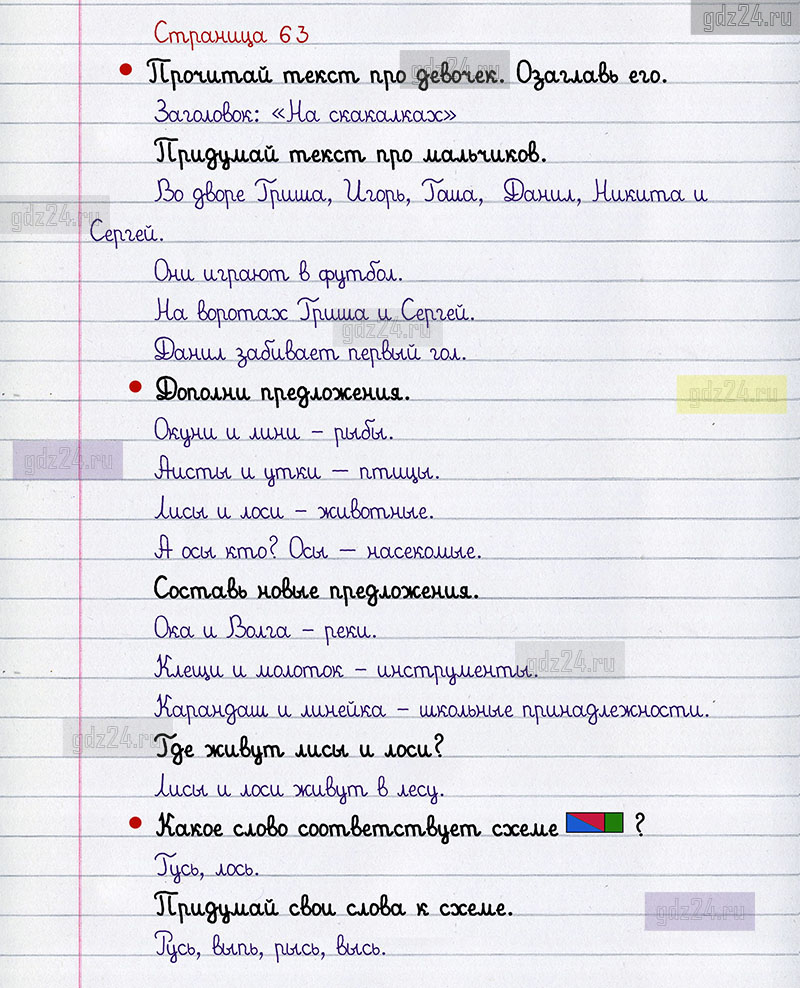 gdz24.ru
Страница 63
• Прочитай текст про девочек. Озаглавь его.
gdz24.ru
Заголовок: «На скакалках»
Придумай текст про мальчиков.
Во дворе Гриша, Игорь, Гоша, Данил, Никита и
gdz24.ru
Сергей.
Они играют в футбол.
На воротах Гриша и Сергей.
gdz24.ru
Данил забивает первый гол.
• Дополни предложения.
gdz24.ru
Окуни и лини – рыбы.
gdz24.ru
Аисты и утки – птицы.
Лисы и лоси – животные.
А осы кто? Осы – насекомые.
Составь новые предложения.
Ока и Волга – реки.
Клещи и молоток – инструменты.
gdz24.ru
Карандаш и линейка – школьные принадлежности.
gdz24.ru
Где живут лисы и лоси?
Лисы и лоси живут в лесу.
• Какое слово соответствует схеме ?
Гусь, лось.
Придумай свои слова к схеме.
gdz24.ru
Русь, выпь, рысь, высь.